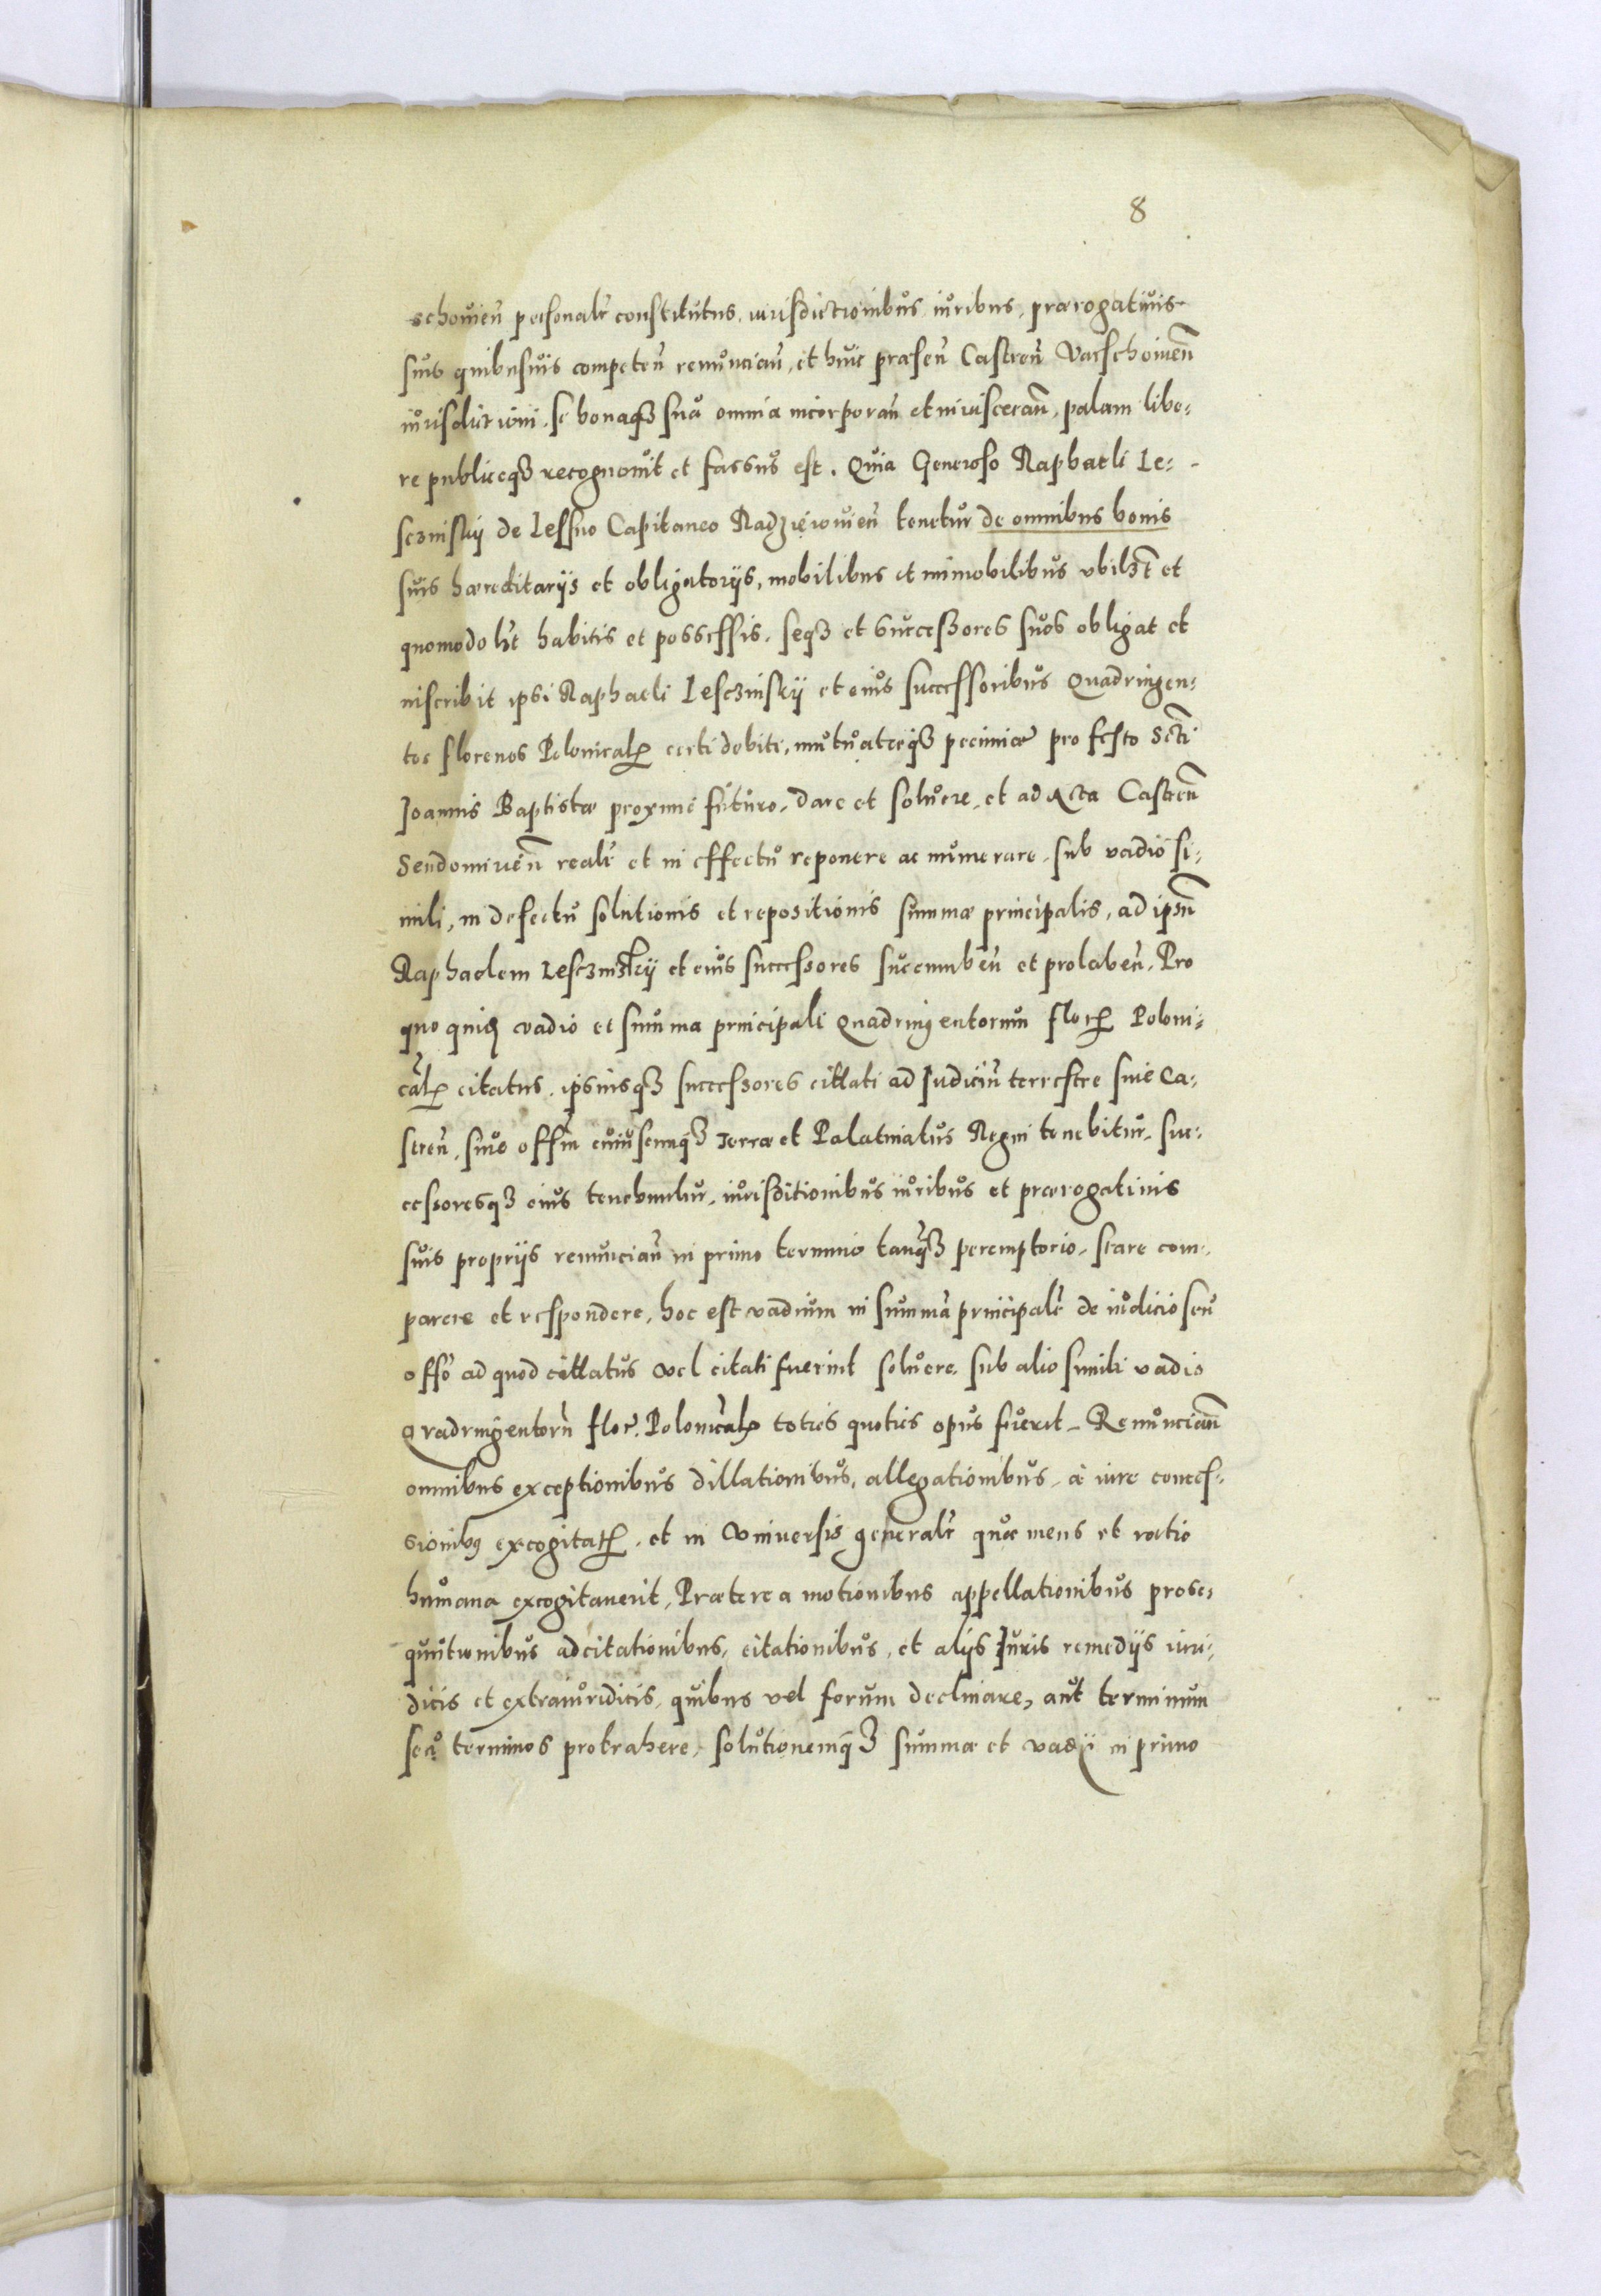 8
schouieñ personalr̃ constitutus, iurisdictionibus iuribus, prærogatiuis
suis quibusuis competeñ renunciañ, et huic præseñ Castreñ Varschouieñ
iurisdictioni, se bonaqʒ sua omnia incorporañ et inuisceran̄, palam libe:
re publiceqʒ recognouit et fassus est. Quia Generoso Raphaeli Le:
sczinskij de Lessno Capitaneo Radzieiouieñ tenetur de omnibus bonis
suis hæreditarijs et obligatorijs, mobilibus et immobilibus vbilʒt et
quomodolʒt habitis et possessis. seqʒ et successores suos obligat et
inscribit ipsi Raphaeli Lesczinskij et eius successoribus Quadringen:
tos florenos Polonicalꝝ certi debiti, mutuatæqʒ pecuniæ pro festo Scti
Joannis Baptistæ proxime futuro, dare et soluere, et ad Acta Castreñ
Sendomirieñ realr̃ et in effectu reponere ac numerare, sub vadio si:
mili, in defectu solutionis et repositionis summæ principalis, ad ipsũ
Raphaelem Lesczinskij et eius successores succumbeñ et prolabeñ. Pro
quo quidẽ vadio et summa principali Quadringentorum florꝝ Poloni:
calꝝ citatus, ipsiusqʒ successores cittati ad Judiciũ terrestre siue Ca:
streñ, siue offm̃ cuiuscunqʒ Terræ et Palatinatus Regni tenebitur, suc:
cessoresqʒ eius tenebuntur, iurisditionibus iuribus et prærogatiuis
suis proprijs renunciañ in primo termino tanqʒ peremptorio, stare com:
parere et respondere, hoc est vadium in summã principalẽ de iudicio seu
offo ad quod cittatus vel citati fuerint soluere, sub alio simili vadio
Qvadringentorũ flor: Polonicalꝝ toties quoties opus fuerit. Renunciañ
omnibus exceptionibus dillationibus, allegationibus, a iure conces:
sionibꝯ excogitatꝝ, et in Vniuersis generalr̃ quæ mens et ratio
humana excogitauerit, Præterea motionibus appellationibus prose:
quutionibus adcitationibus, citationibus, et alijs Juris remedijs iuri:
dicis et extraiuridicis, quibus vel forum declinare, aut terminum
seu terminos protrahere, solutionemqʒ summæ et vadij in primo